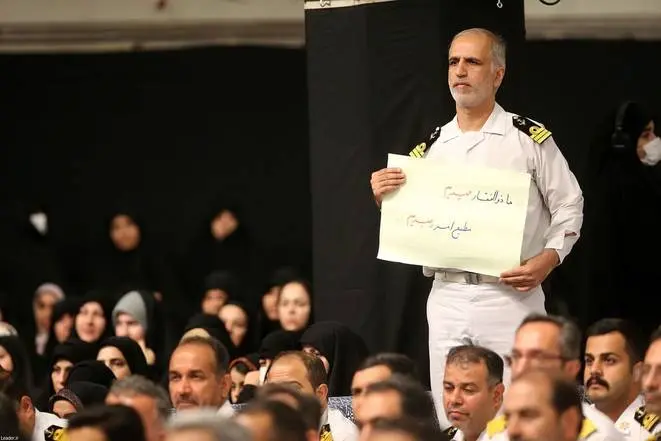 ما ذوالفقار حیدریم
مطیع امر رهبریم
Leader.ir